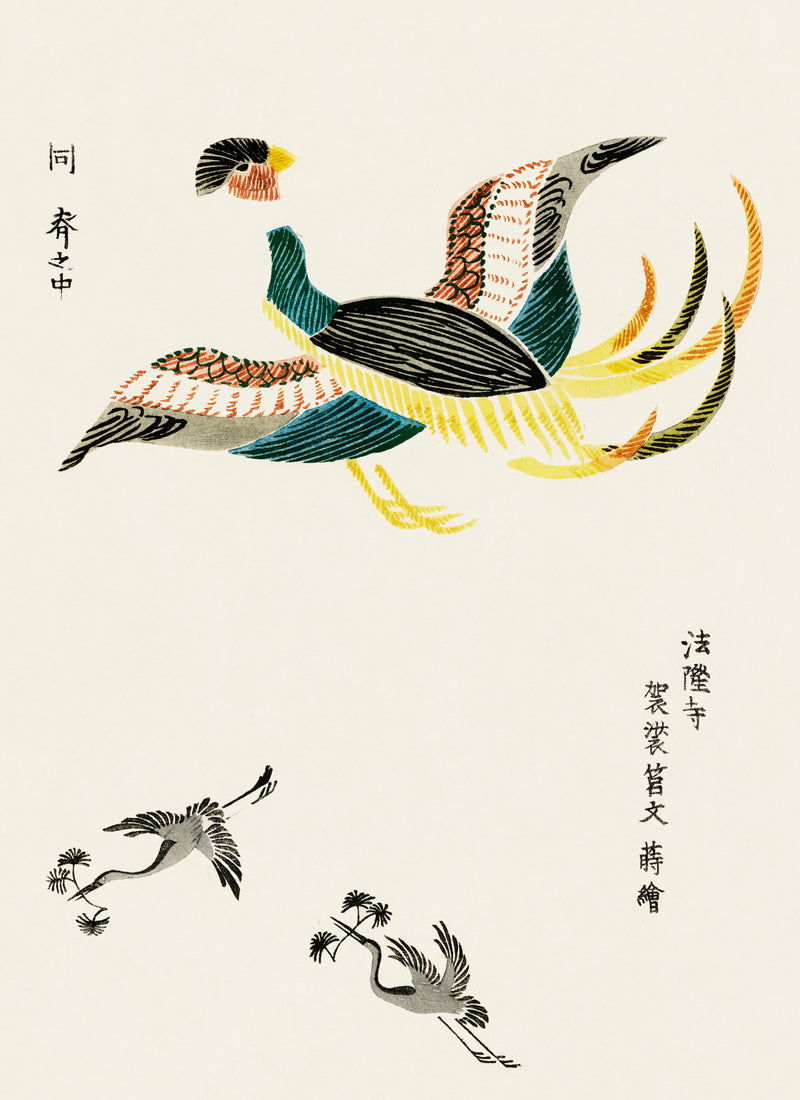 同 脊之中
法隆寺
袈裟筥文 蒔繪